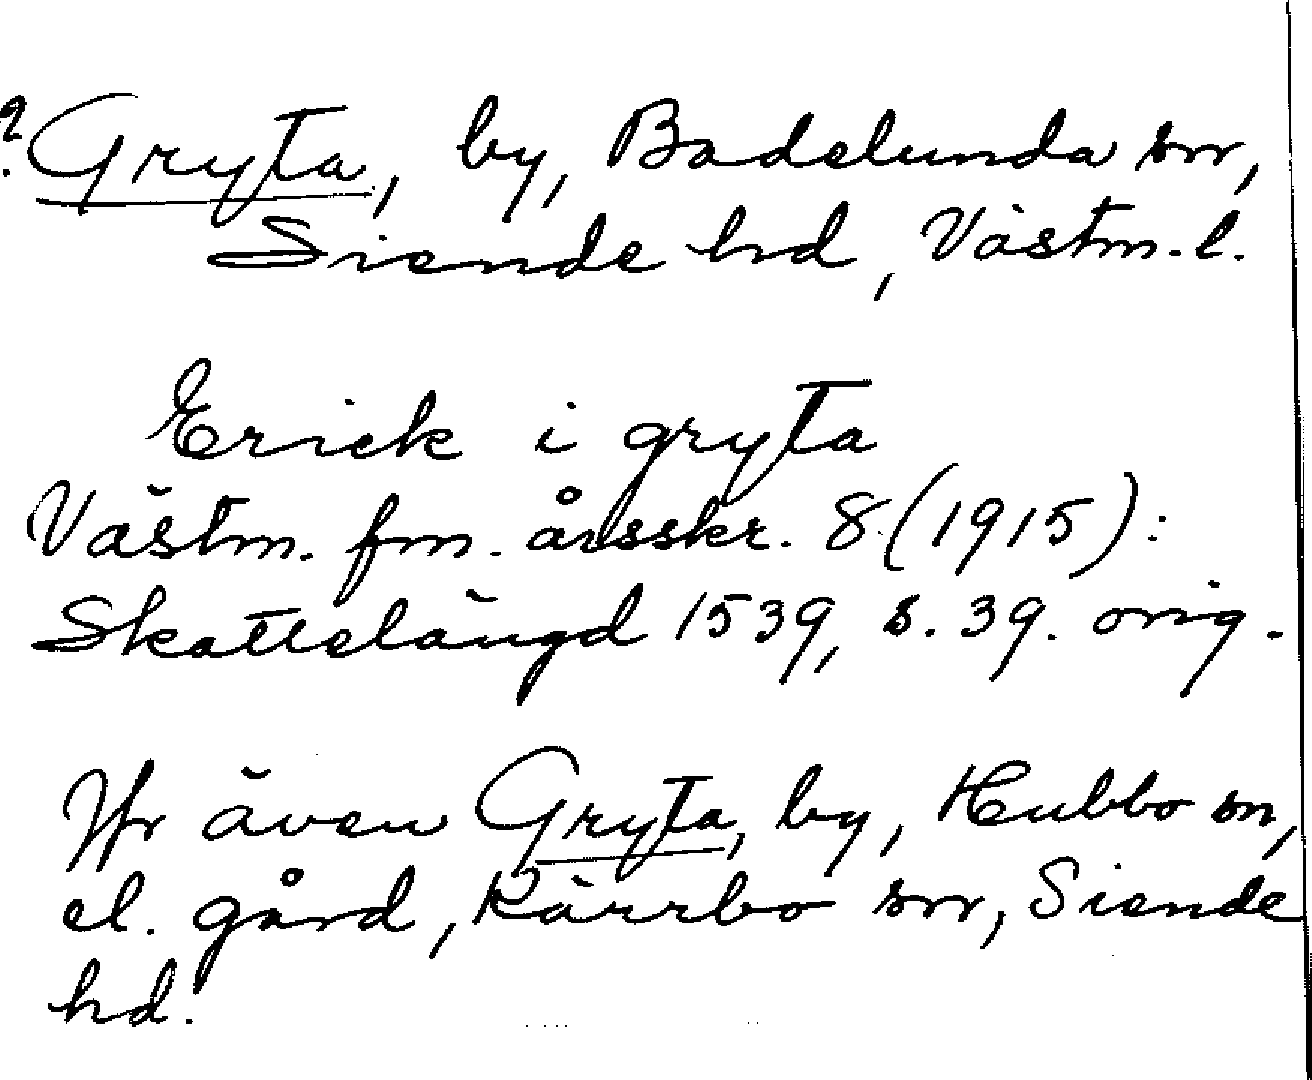 ? Gryta, by, Badelunda sn,
Siende hd, Västm. l.
Erick i gryta
Västm. fm. årsskr. 8 (1915):
Skattelängd 1539, s. 39. orig.
Jfr även Gryta, by, Hubbo sn,
el. gård, Kärrbo sn, Siende
hd.